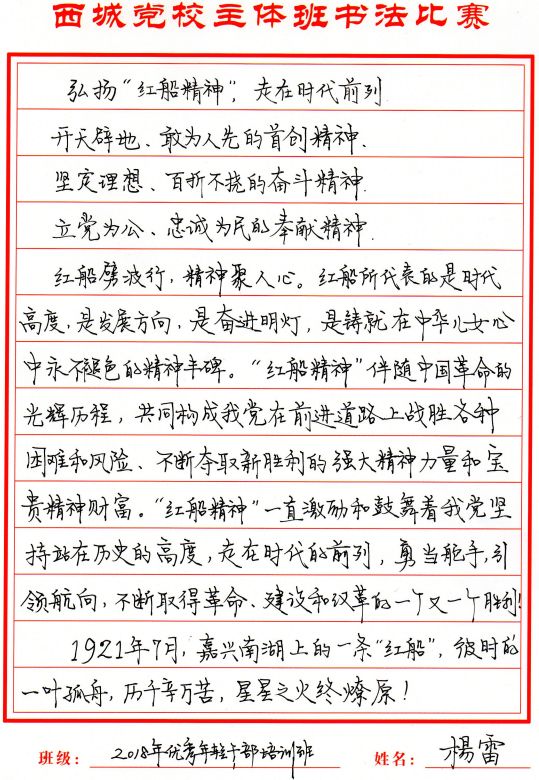 西城党校主体班书法比赛
弘扬“红船精神”,走在时代前列
开天辟地、敢为人先的首创精神、
坚定理想、百折不挠的奋斗精神、
立党为公、忠诚为民的奉献精神.
红船劈波行,精神聚人心。红船所代表的是时代
高度,是发展方向,是奋进明灯,是铸就在中华儿女心
中永不褪色的精神丰碑。“红船精神”伴随中国革命的
光辉历程,共同构成我党在前进道路上战胜各种
困难和风险、不断夺取新胜利的强大精神力量和宝
贵精神财富。“红船精神”一直激励和鼓舞着我党坚
持站在历史的高度,走在时代的前列,勇当舵手,引
领航向,不断取得革命、建设和改革的一个又一个胜利!
1921年7月,嘉兴南湖上的一条“红船”,彼时的
一叶孤舟,历千辛万苦,星星之火终燎原!
班级:2018年优秀年轻干部培训班 姓名:楊雷